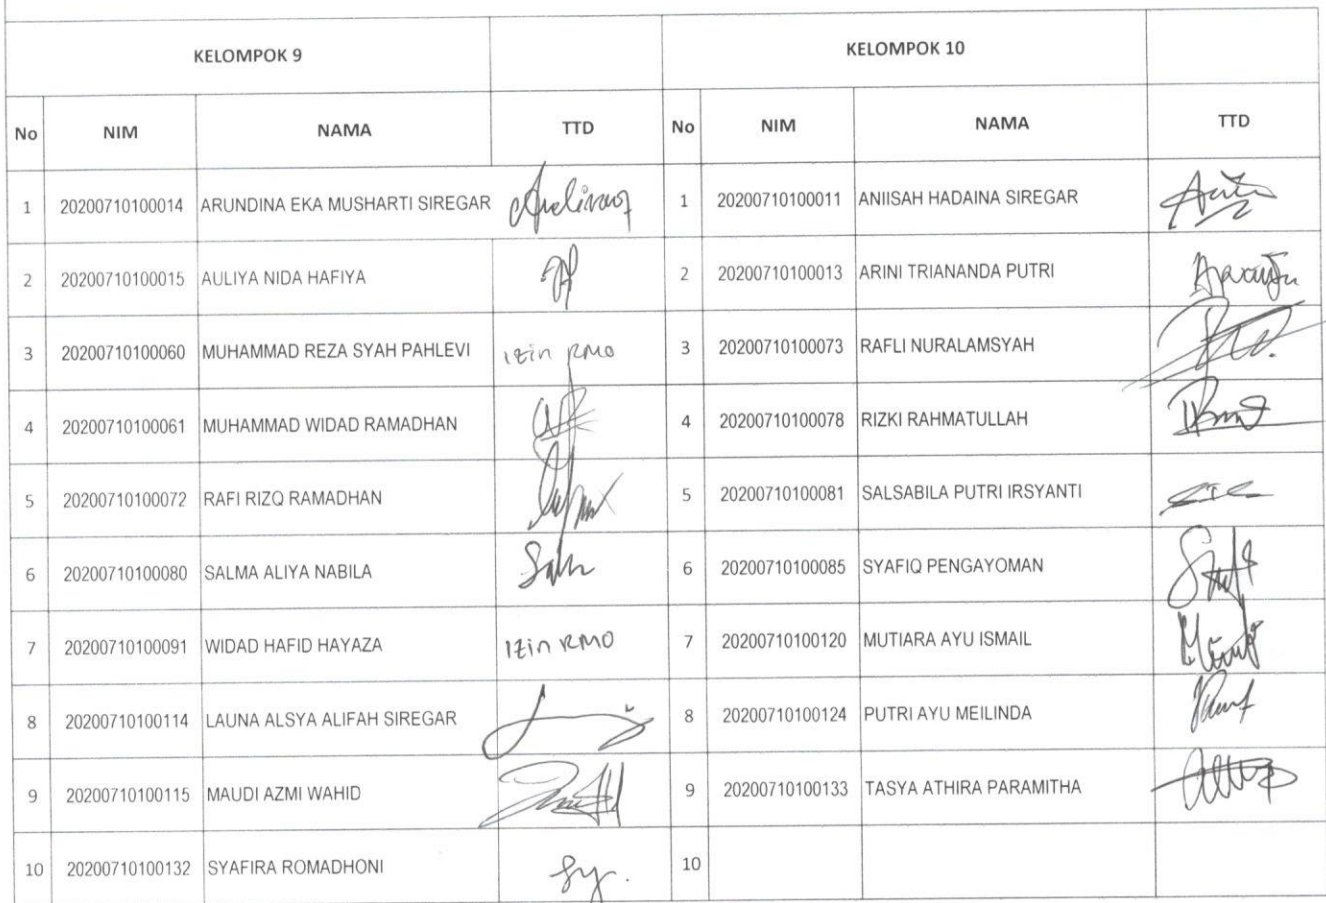 KELOMPOK 9 KELOMPOK 10
No NIM NAMA TTD No NIM NAMA TTD
1 20200710100014 ARUNDINA EKA MUSHARTI SIREGAR 1 20200710100011 ANIISAH HADAINA SIREGAR
2 20200710100015 AULIYA NIDA HAFIYA 2 20200710100013 ARINI TRIANANDA PUTRI
3 20200710100060 MUHAMMAD REZA SYAH PAHLEVI izin RMO 3 20200710100073 RAFLI NURALAMSYAH
4 20200710100061 MUHAMMAD WIDAD RAMADHAN 4 20200710100078 RIZKI RAHMATULLAH
5 20200710100072 RAFI RIZQ RAMADHAN 5 20200710100081 SALSABILA PUTRI IRSYANTI
6 20200710100080 SALMA ALIYA NABILA 6 20200710100085 SYAFIQ PENGAYOMAN
7 20200710100091 WIDAD HAFID HAYAZA Izin RMO 7 20200710100120 MUTIARA AYU ISMAIL
8 20200710100114 LAUNA ALSYA ALIFAH SIREGAR 8 20200710100124 PUTRI AYU MEILINDA
9 20200710100115 MAUDI AZMI WAHID 9 20200710100133 TASYA ATHIRA PARAMITHA
10 20200710100132 SYAFIRA ROMADHONI 10